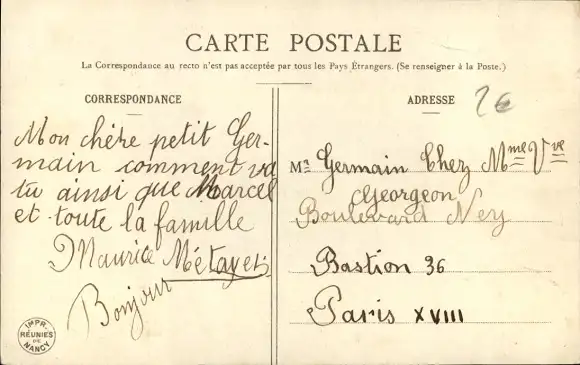 CARTE POSTALE
La Correspondance au recto n'est pas acceptée par tous les Pays Étrangers. (Se renseigner à la Poste.)
CORRESPONDANCE
Mon chére petit Ger-
main comment va
tu ainsi que Marcel
et toute la famille
Maurice Métayer
Bonjour
IMPR.
RÉUNIES
DE
NANCY
ADRESSE
2€
Mr Germain Chez Mme Vve
Georgeon
Boulevard Ney
Bastion 36
Paris XVIII